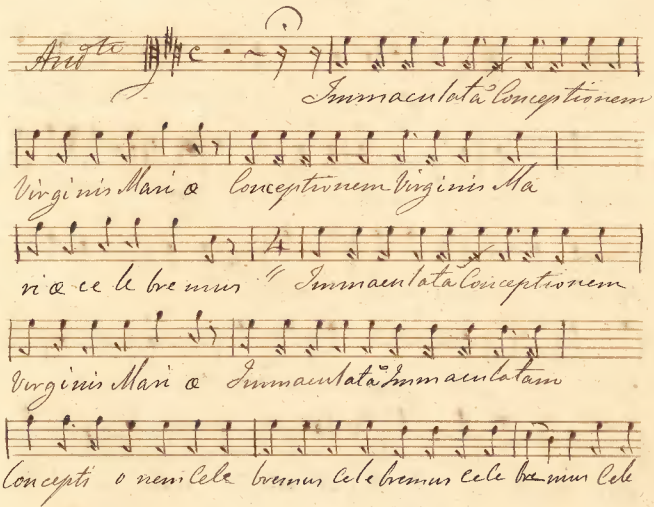 Andte
Immaculatã Conceptionem
Virginis Mari æ Conceptionem Virginis Ma
ri æ ce le bre mus " 4 Immaculatã Conceptionem
Virginis Mari æ Immaculatã Immaculatam
Concepti o nem Cele bremus Cele bremus Cele bre mus Cele